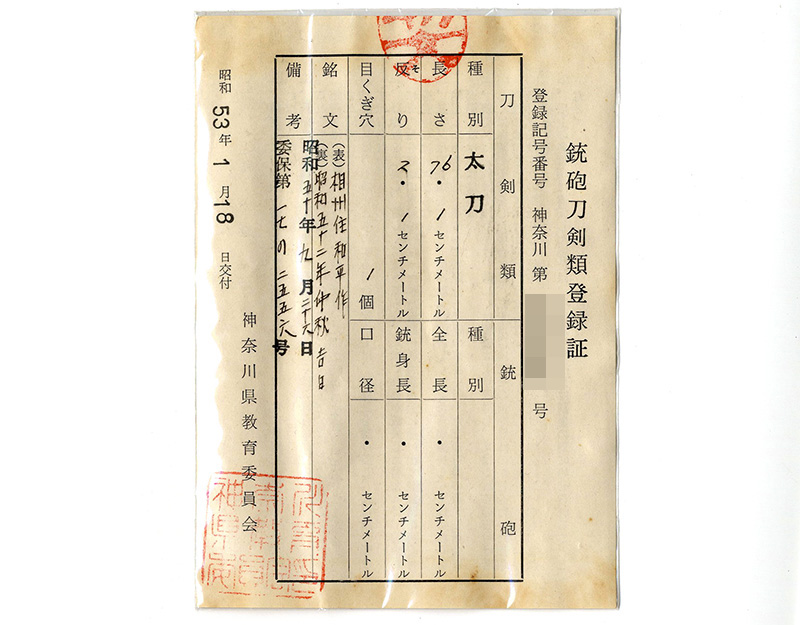 銃砲刀剣類登録証
登録記号番号 神奈川 第 号
刀剣類 銃砲
種別 太刀 種別
長さ 76.1センチメートル 全長 ・センチメートル
反り 2.1センチメートル 銃身長 ・センチメートル
目くぎ穴 1個 口径 ・センチメートル
銘文 (表)相州住和平作
(裏)昭和五十二年仲秋吉日
備考 昭和五十年九月二十六日
委保第一七の二五五六号
昭和53年1月18日交付
神奈川県教育委員会